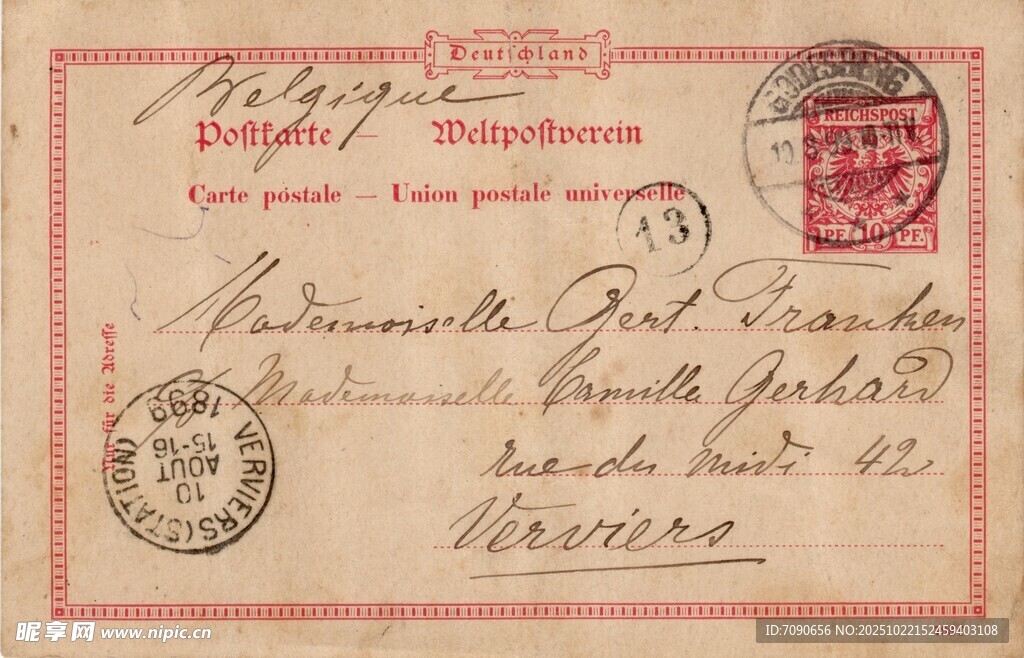 Deutschland
Belgique
Postkarte — Weltpostverein
Carte postale — Union postale universelle
GODESBERG
REICHSPOST
PF. 10 PF.
13
Mademoiselle Gert. Franken
Mademoiselle Camille Gerhard
rue du midi 42
Verviers
Nur für die Adresse
VERVIERS (STATION)
10
AOUT
15-16
1899
昵享网 www.nipic.cn
ID:7090656 NO:20251022152459403108